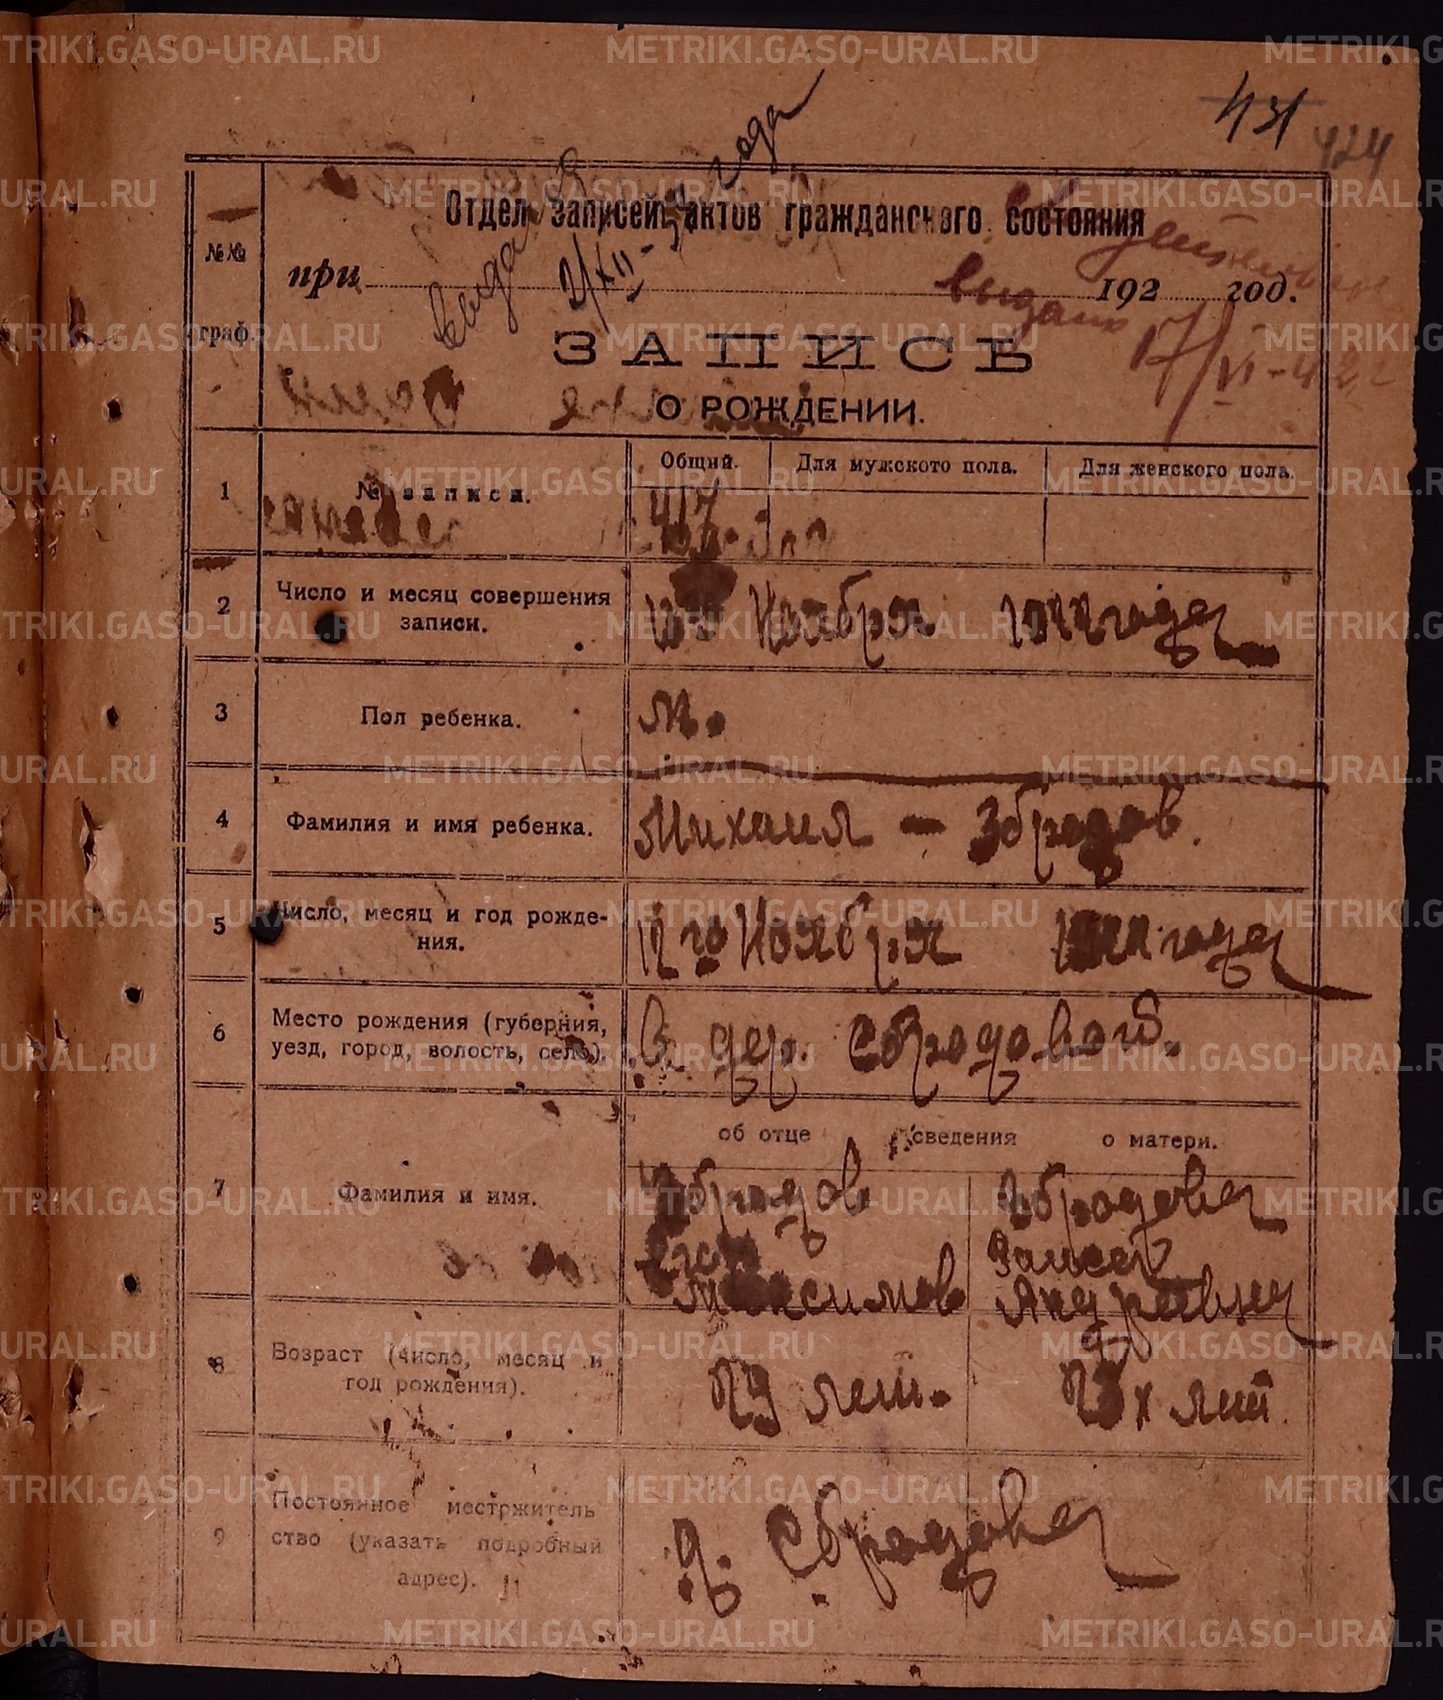 431
424
Отдел записей актов гражданского состояния
при 192 год.
выдан
2/XII-
года
выдано
17/VI-42 г
№№ граф.
ЗАПИСЬ
О РОЖДЕНИИ.
1
№ записи.
Общий.
Для мужского пола.
Для женского пола.
417
2
Число и месяц совершения
записи.
Ноября года
3
Пол ребенка.
м.
4
Фамилия и имя ребенка.
Михаил — Збродов.
5
Число, месяц и год рожде-
ния.
12 го Ноября года
6
Место рождения (губерния,
уезд, город, волость, село).
В дер. Сбродовой.
об отце сведения о матери.
7
Фамилия и имя.
Збродов
Егор
Максимов
Збродова
Андревна
8
Возраст (число, месяц и
год рождения).
29 лет.
23х лет.
9
Постоянное местржитель
ство (указать подробный
адрес).
д. Сбродова
METRIKI.GASO-URAL.RU